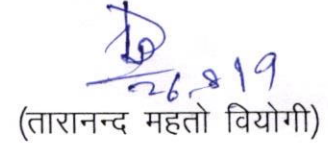 26.8.19
(तारानन्द महतो वियोगी)